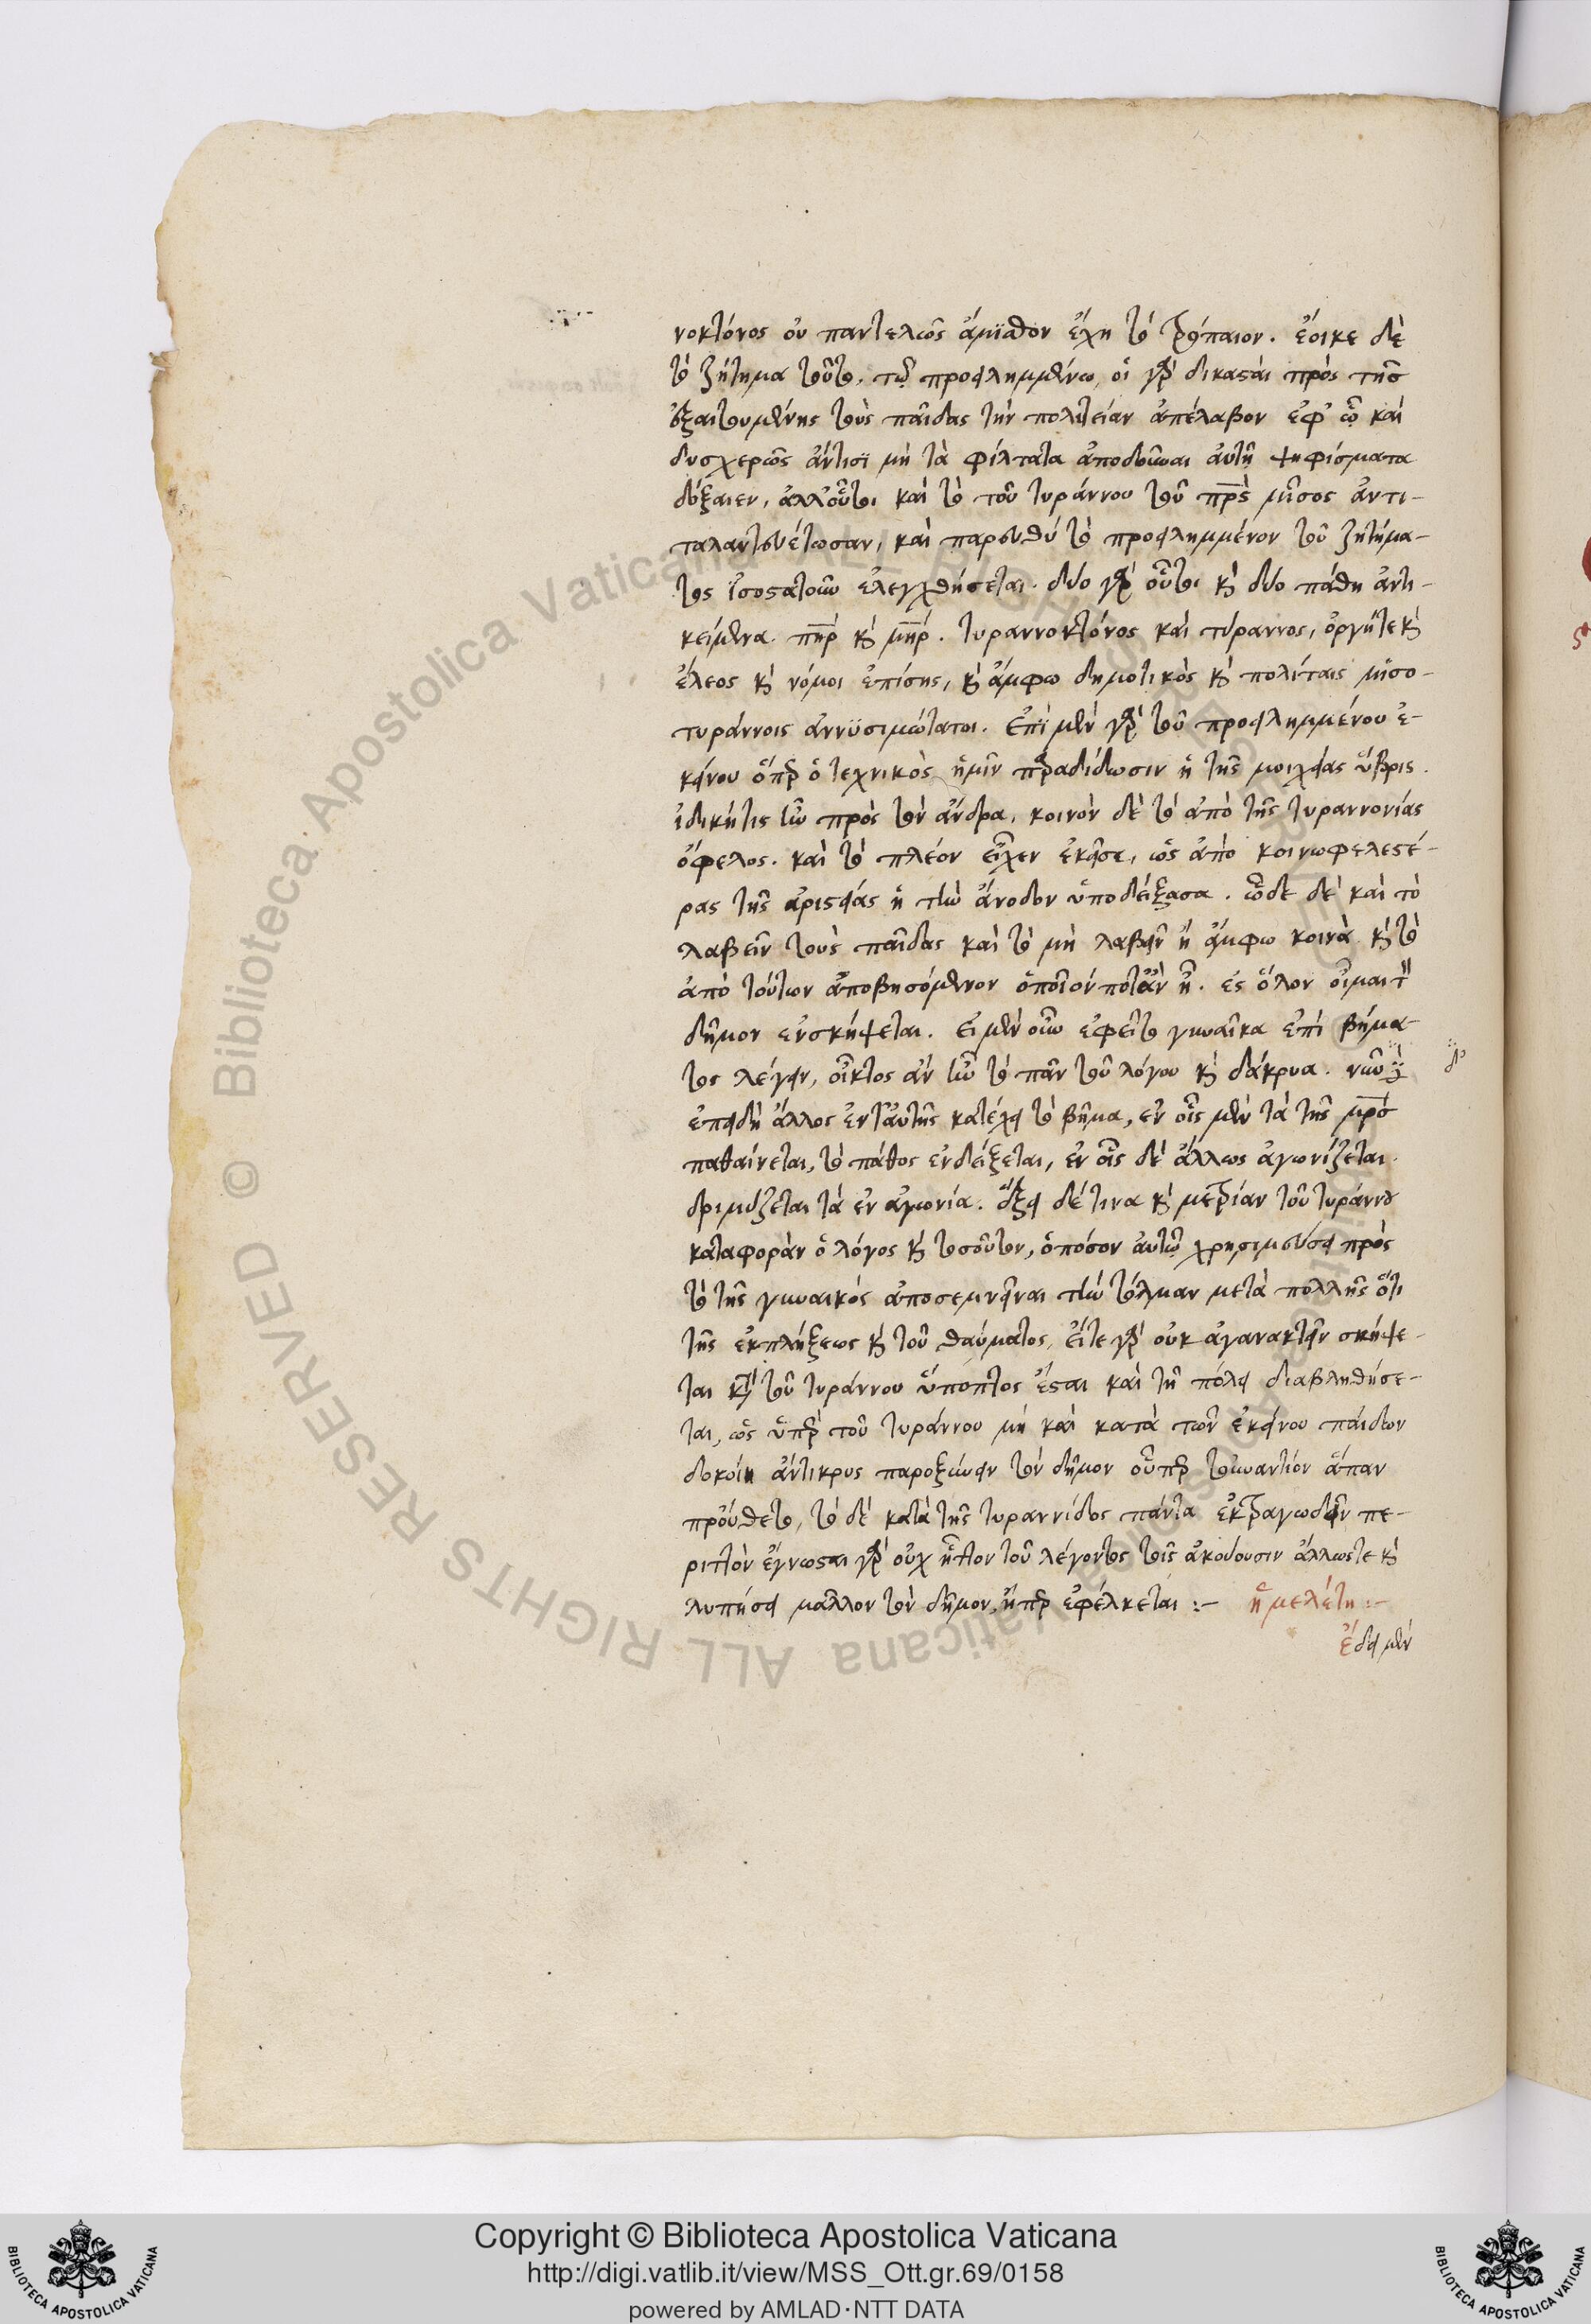 νοκτόνος οὐ παντελῶς ἄμισθον ἔχη τὸ τρόπαιον. ἔοικε δὲ
τὸ ζήτημα τοῦτο. τῷ προειλημμένω, οἱ γὰρ δικασταὶ πρὸς τῆς
ἐξαιτουμένης τοὺς παῖδας τὴν πολιτείαν ἀπέλαβον ἐφ' ᾧ καὶ
δυσχερῶς ἄντισι μὴ τὰ φίλτατα ἀποδοῦναι αὐτῆ ψηφίσματα
δόξαιεν, ἀλλ' οὗτοι καὶ τὸ τοῦ τυράννου τοῦ πρς μῖσος ἀντι-
ταλαντευέτωσαν, καὶ παρευθὺ τὸ προειλημμένον τοῦ ζητήμα-
τος ἰσοστατοῦν ἐλεγχθήσεται. δύο γὰρ οὗτοι κὶ δύο πάθη ἀντι-
κείμενα. πηρ κὶ μηρ. τυραννοκτόνος καὶ τύραννος, ὀργήτε κὶ
ἔλεος κὶ νόμοι ἐπίσης, κὶ ἄμφω δημοτικὸς κὶ πολίταις μισο-
τυράννοις ἀνυσιμώτατοι. ἐπὶ μὲν γὰρ τοῦ προειλημμένου ἐ-
κείνου ὅπερ ὁ τεχνικὸς ἡμῖν παραδίδωσιν ἡ τῆς μοιχείας ὕβρις.
ἰδικήτις ἦν πρὸς τὸν ἄνδρα, κοινὸν δὲ τὸ ἀπὸ τῆς τυραννονίας
ὄφελος. καὶ τὸ πλέον εἶχεν ἐκεῖσε, ὡς ἀπὸ κοινωφελεστέ-
ρας τῆς ἀριστείας ἡ τὴν ἄνοδον ὑποδείξασα. ὧδε δὲ καὶ τὸ
λαβεῖν τοὺς παῖδας καὶ τὸ μὴ λαβεῖν ἢ ἄμφω κοινὰ κὶ τὸ
ἀπὸ τούτων ἀποβησόμενον ὁποῖόν ποτ' ἂν ἦ. ἐς ὅλον οἶμαι τ
δῆμον ἐνσκήψεται. εἰ μὲν οὖν ἐφεῖτο γυναῖκα ἐπὶ βήμα-
τος λέγειν, οἶκτος ἂν ἦν τὸ πᾶν τοῦ λόγου κὶ δάκρυα. νῦν
δ'
ἐπειδὴ ἄλλος ἀντ' αὐτῆς κατέχει τὸ βῆμα, ἐν οἷς μὲν τὰ τῆς μρς
παθαίνεται, τὸ πάθος ἐνδείξεται, ἐν οἷς δὲ ἄλλως ἀγωνίζεται.
δριμύξεται τὰ ἐν ἀγωνία. ἕξει δέ τινα κὶ μετρίαν τοῦ τυράννου
καταφορὰν ὁ λόγος κὶ τοσοῦτον, ὁπόσον αὐτῷ χρησιμεύσει πρὸς
τὸ τῆς γυναικὸς ἀποσεμνῆναι τὴν τόλμαν μετὰ πολλῆς ὅτι
τῆς ἐκπλήξεως κὶ τοῦ θαύματος, εἴτε γὰρ οὐκ ἀγανακτεῖν σκήψε-
ται κατὰ τοῦ τυράννου ὕποπτος ἔσται καὶ τῆ πόλει διαβληθήσε-
ται, ὡς ὑπὲρ τοῦ τυράννου μὴ καὶ κατὰ τῶν ἐκείνου παίδων
δοκοίη ἄντικρυς παροξύνειν τὸν δῆμον οὗπερ τοὐναντίον ἅπαν
προὔθετο, τὸ δὲ κατὰ τῆς τυραννίδος πάντα ἐκτραγωδεῖν πε-
ριττὸν ἔγνωσται γὰρ οὐχ ἧττον τοῦ λέγοντος τοῖς ἀκούουσιν ἄλλωστε κὶ
λυπήσει μᾶλλον τὸν δῆμον, ἤπερ ἐφέλκεται :- ἡ μελέτη :-
ἔδει μὲν
Copyright © Biblioteca Apostolica Vaticana
http://digi.vatlib.it/view/MSS_Ott.gr.69/0158
powered by AMLAD·NTT DATA